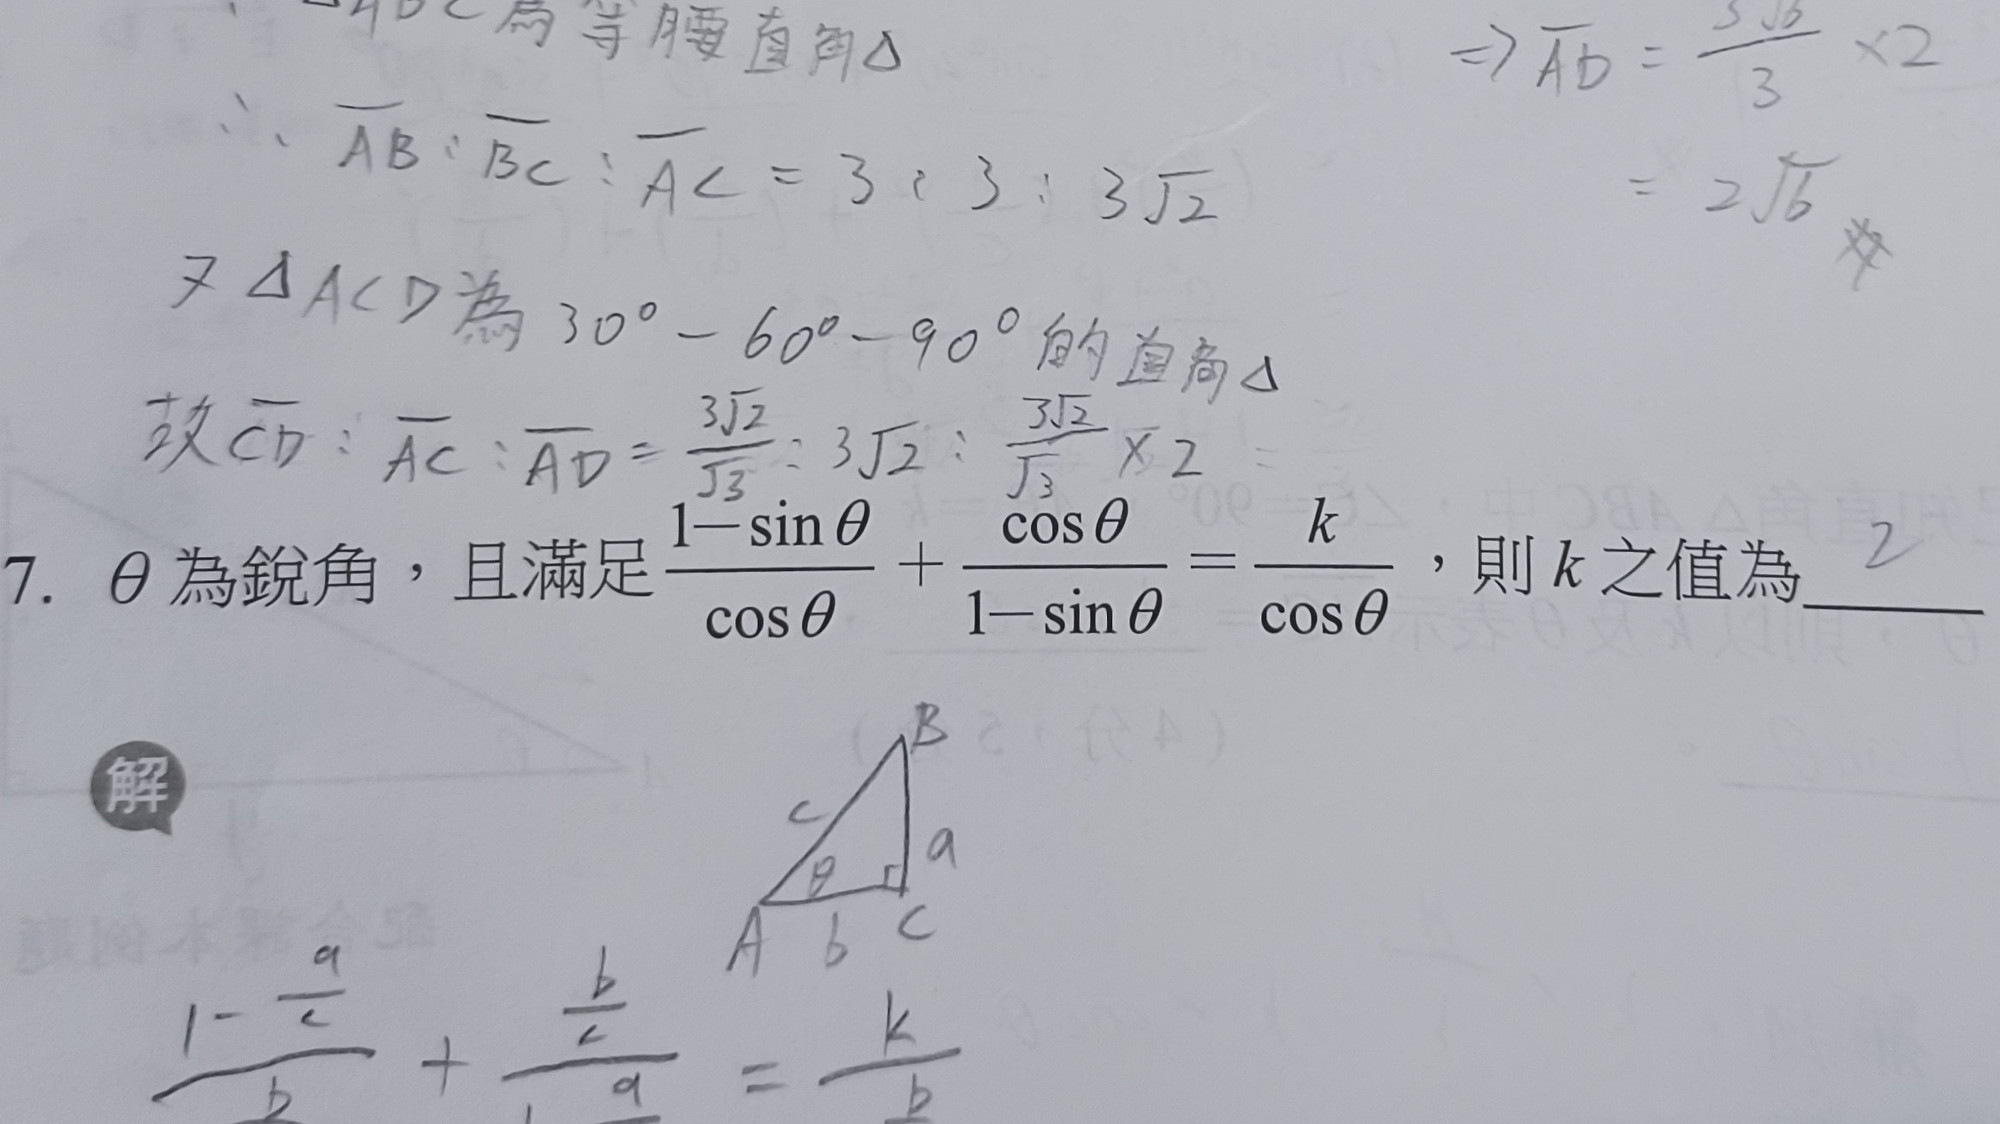 △ABC為等腰直角△
∴ AB : BC : AC = 3 : 3 : 3√2
又△ACD為30°-60°-90°的直角△
故CD : AC : AD = 3√2/√3 : 3√2 : 3√2/√3 × 2
⇒ AD = 3√6/3 × 2
= 2√6
7. θ為銳角，且滿足 (1-sinθ)/cosθ + cosθ/(1-sinθ) = k/cosθ，則k之值為 2
解
B
c
a
θ
A
b
C
(1 - a/c)/b + (b/c)/(1 - a = k/b